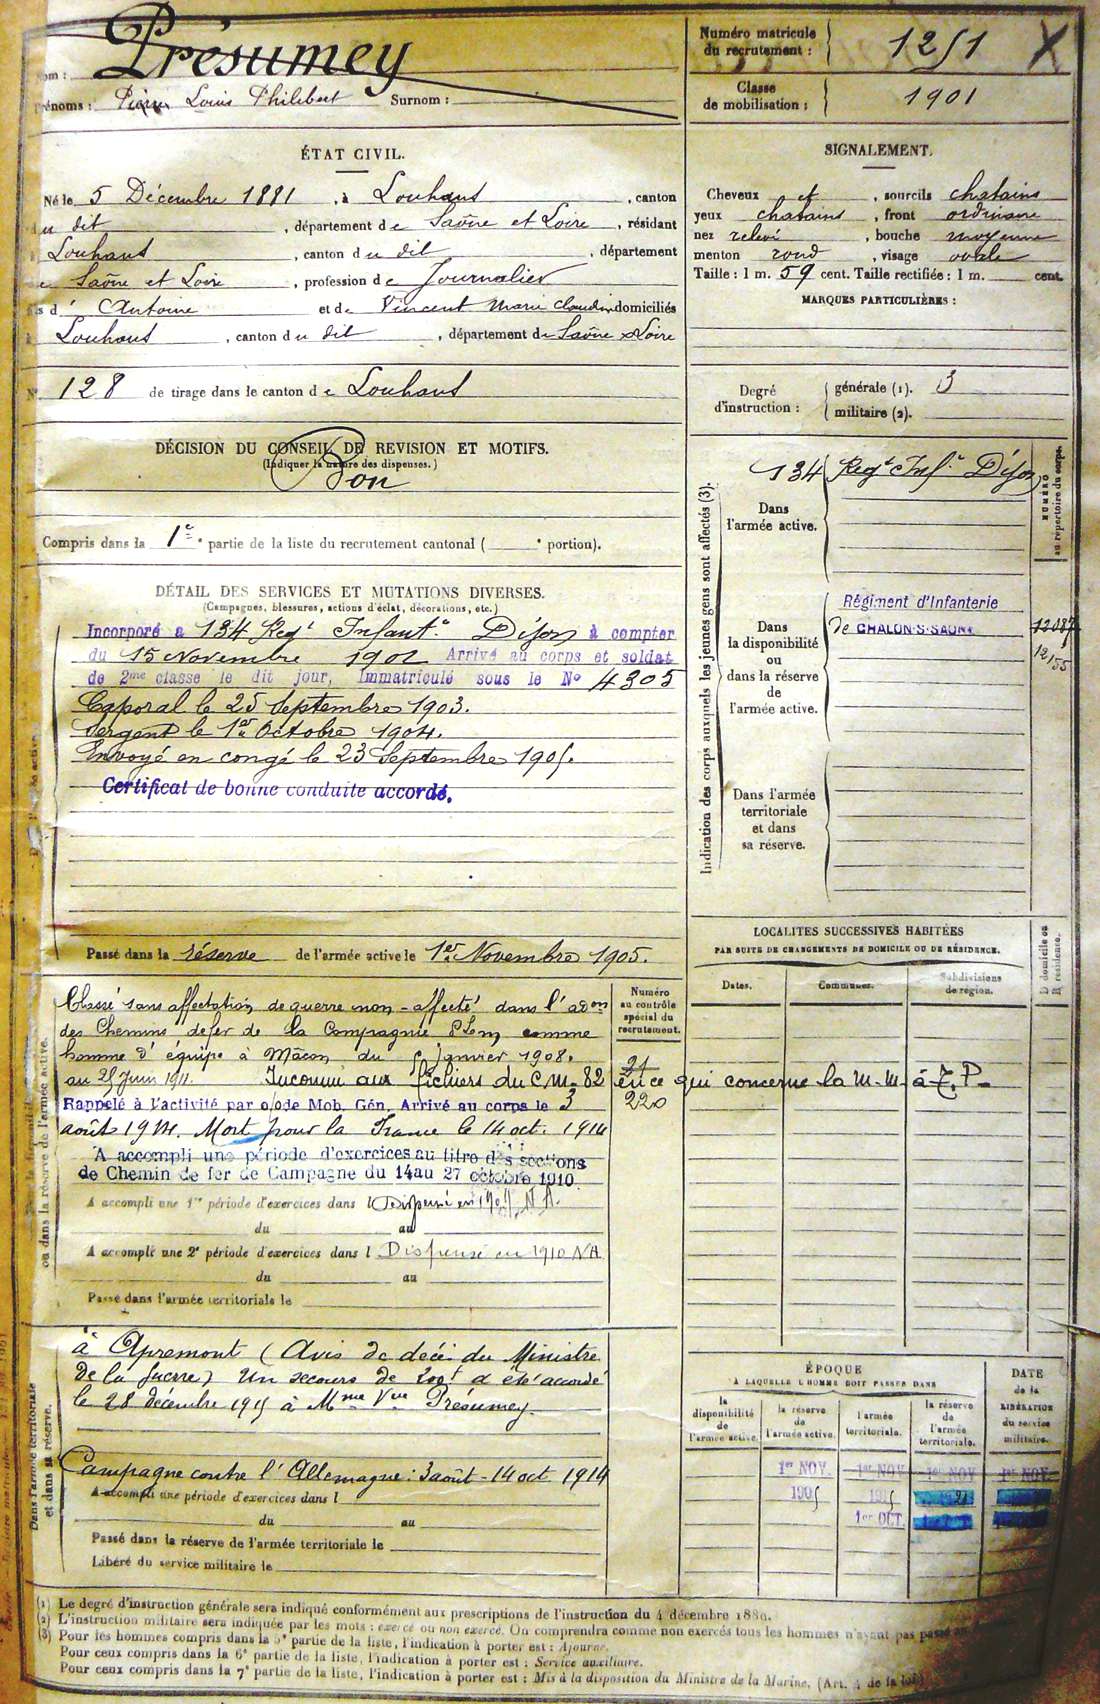 Nom : Présumey
Prénoms : Pierre Louis Philibert Surnom :
Numéro matricule du recrutement : 1251 X
Classe de mobilisation : 1901
ÉTAT CIVIL.
Né le 5 Décembre 1881, à Louhans, canton
du dit, département de Saône et Loire, résidant
Louhans, canton du dit, département
Saône et Loire, profession de Journalier
fils d' Antoine et de Vincent Marie Claudine domiciliés
à Louhans, canton du dit, département de Saône & Loire
N° 128 de tirage dans le canton de Louhans
SIGNALEMENT.
Cheveux et, sourcils chatains
yeux chatains, front ordinaire
nez relevé, bouche moyenne
menton rond, visage ovale
Taille : 1 m. 59 cent. Taille rectifiée : 1 m. cent.
MARQUES PARTICULIÈRES :
Degré d'instruction : générale (1). 3
militaire (2).
DÉCISION DU CONSEIL DE REVISION ET MOTIFS.
(Indiquer la nature des dispenses.)
Bon
Compris dans la 1e partie de la liste du recrutement cantonal ( e portion).
DÉTAIL DES SERVICES ET MUTATIONS DIVERSES.
(Campagnes, blessures, actions d'éclat, décorations, etc.)
Incorporé a 134 Regt Infantie Dijon à compter
du 15 Novembre 1902 Arrivé au corps et soldat
de 2me classe le dit jour, Immatriculé sous le No 4305
Caporal le 25 Septembre 1903.
Sergent le 1er Octobre 1904.
Envoyé en congé le 23 Septembre 1905.
Certificat de bonne conduite accordé.
Passé dans la réserve de l'armée active le 1er Novembre 1905.
Indication des corps auxquels les jeunes gens sont affectés (3).
NUMÉRO au répertoire du corps.
134 Regt Infie Dijon
Dans l'armée active.
Régiment d'Infanterie
de CHALON-S-SAONE
12087
12/55
Dans la disponibilité ou dans la réserve de l'armée active.
Dans l'armée territoriale et dans sa réserve.
LOCALITES SUCCESSIVES HABITÉES
PAR SUITE DE CHANGEMENTS DE DOMICILE OU DE RÉSIDENCE.
Dates. Communes. Subdivisions de région. D domicile ou R résidence.
ou dans la réserve de l'armée active.
Numéro au contrôle spécial du recrutement.
Classé sans affectation de guerre non-affecté dans l'adon
des Chemins de fer de la Compagnie PLM comme
homme d'équipe à Mâcon du 5 Janvier 1908.
au 25 Juin 1911. Inconnu aux fichiers du C.M. 82 en ce qui concerne la M.M à T.P.
21
220
Rappelé à l'activité par o/ de Mob. Gén. Arrivé au corps le 3
août 1914. Mort pour la France le 14 oct. 1914
A accompli une période d'exercices au titre des sections
de Chemin de fer de Campagne du 14 au 27 octobre 1910
A accompli une 1re période d'exercices dans l Dispensé en N A.
du au
A accompli une 2e période d'exercices dans l Dispensé en 1910 NA
du au
Passé dans l'armée territoriale le
Dans l'armée territoriale et dans sa réserve.
à Apremont (Avis de décès du Ministre
de la Guerre) Un secours de 200f a été accordé
le 28 décembre 1915 à Mme Vve Présumey.
Campagne contre l'Allemagne : 3 août - 14 oct. 1914
A accompli une période d'exercices dans l
du au
Passé dans la réserve de l'armée territoriale le
Libéré du service militaire le
ÉPOQUE
A LAQUELLE L'HOMME DOIT PASSER DANS
DATE de la LIBÉRATION du service militaire.
la disponibilité de l'armée active. la réserve de l'armée active. l'armée territoriale. la réserve de l'armée territoriale.
1er NOV. 1er NOV 1er NOV 1er NOV.
1905 1915
1er OCT.
(1) Le degré d'instruction générale sera indiqué conformément aux prescriptions de l'instruction du 4 décembre 1889.
(2) L'instruction militaire sera indiquée par les mots : exercé ou non exercé. On comprendra comme non exercés tous les hommes n'ayant pas passé
(3) Pour les hommes compris dans la 5e partie de la liste, l'indication à porter est : Ajourné.
Pour ceux compris dans la 6e partie de la liste, l'indication à porter est : Service auxiliaire.
Pour ceux compris dans la 7e partie de la liste, l'indication à porter est : Mis à la disposition du Ministre de la Marine. (Art. 4 de la loi)